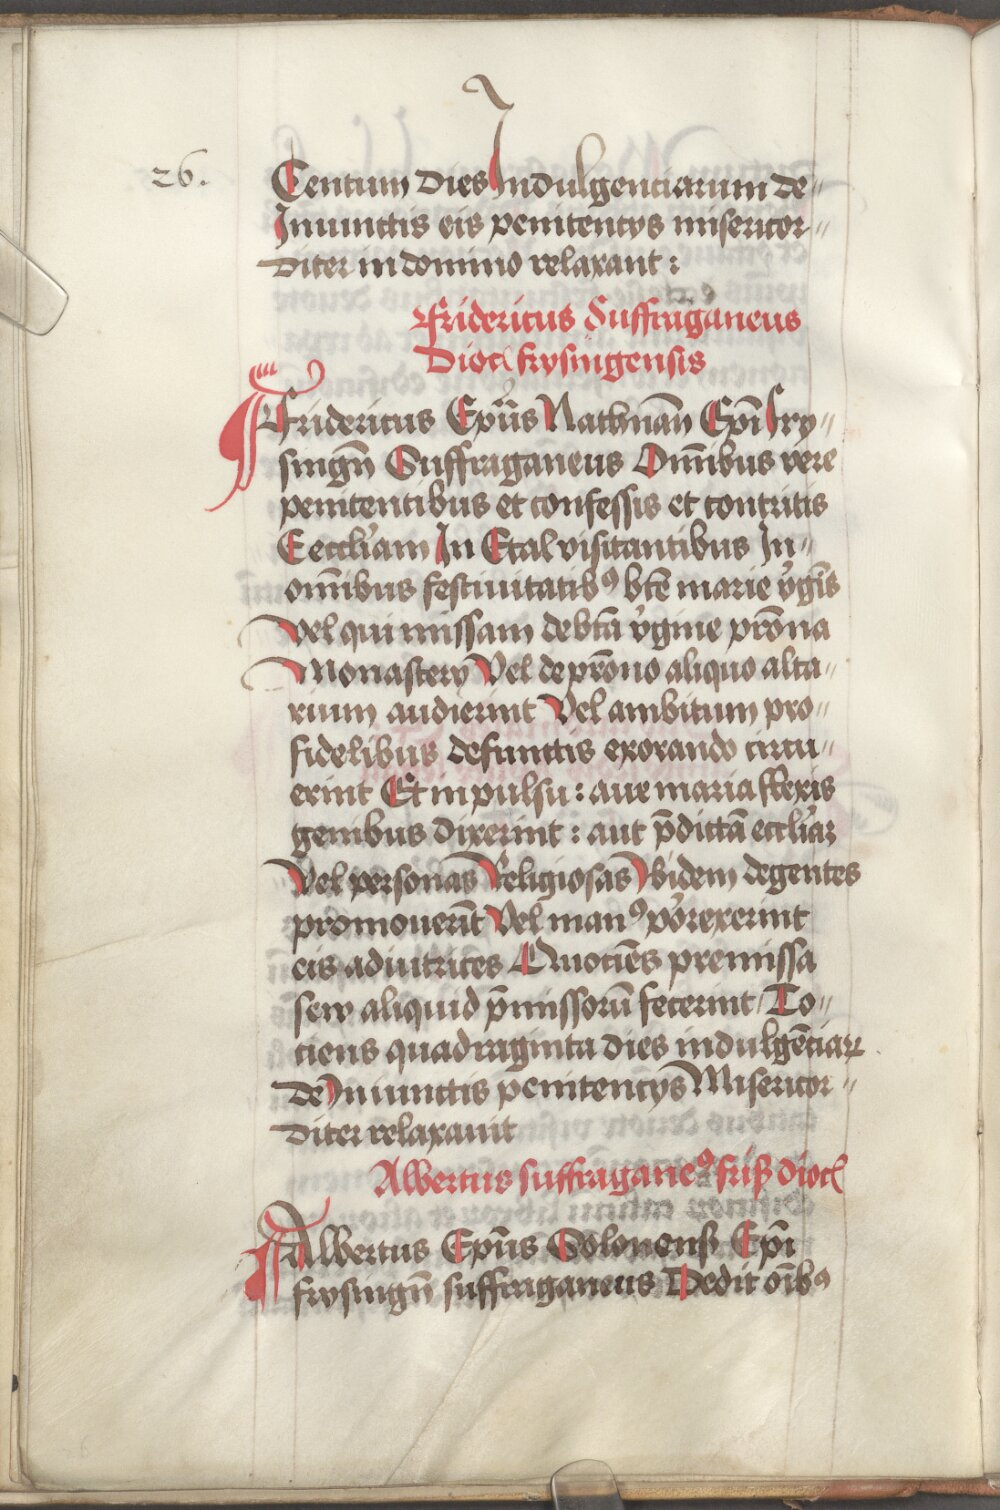 26.
Centum dies Indulgenciarum de〃
Iniunctis eis penitencys misericor〃
diter in domino relaxant :
Fridericus Suffraganeus
Dioc̄ frysingensis
Fridericus Ep̄us Nathnan̄ Ep̄i fry〃
singn̄ Suffraganeus Om̄ibus vere
penitentibus et confessis et contritis
Eccl̄iam In Etal visitantibus In〃
om̄ibus festiuitatibꝰ bt̄e marie v̓gīs
Vel qui missam de bt̄a v̓gine pr̄ona
Monastery Vel de pr̄ono aliquo alta〃
rium audierint Vel ambitum pro〃
fidelibus defunctis exorando circu〃
erint Et in pulsu : aue maria flexis
genibus dixerint : aut p̄dictā eccl̄iaꝛ
Vel personas Religiosas Ibidem degentes
promouerīt Vel manꝰ porrexerint
eis adiutrices Quociēs premissa
sew aliquid p̄missorū fecerint / To〃
ciens quadraginta dies indulgēciaꝝ
de Iniunctis penitencys Misericor〃
diter relaxauit
Albertus suffraganeꝰ friß dioc̄
Albertus Ep̄us Solonenß Ep̄i
frysingn̄ suffraganeus Dedit oībꝰ